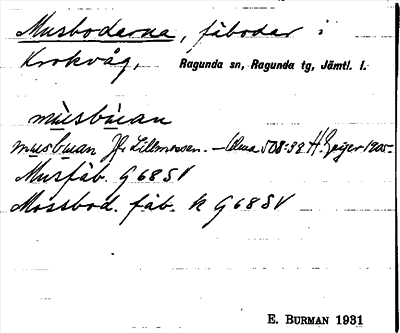 Musbodarna, fäbodar i
Krokvåg, Ragunda sn, Ragunda tg, Jämtl. l.
mùsbùan
musbuan Jfr Lillmossen. — 508-39 H. Geijer 1905.
Musfäb. G 68 SV
Mossbod. fäb. k G 68 SV
E. BURMAN 1931